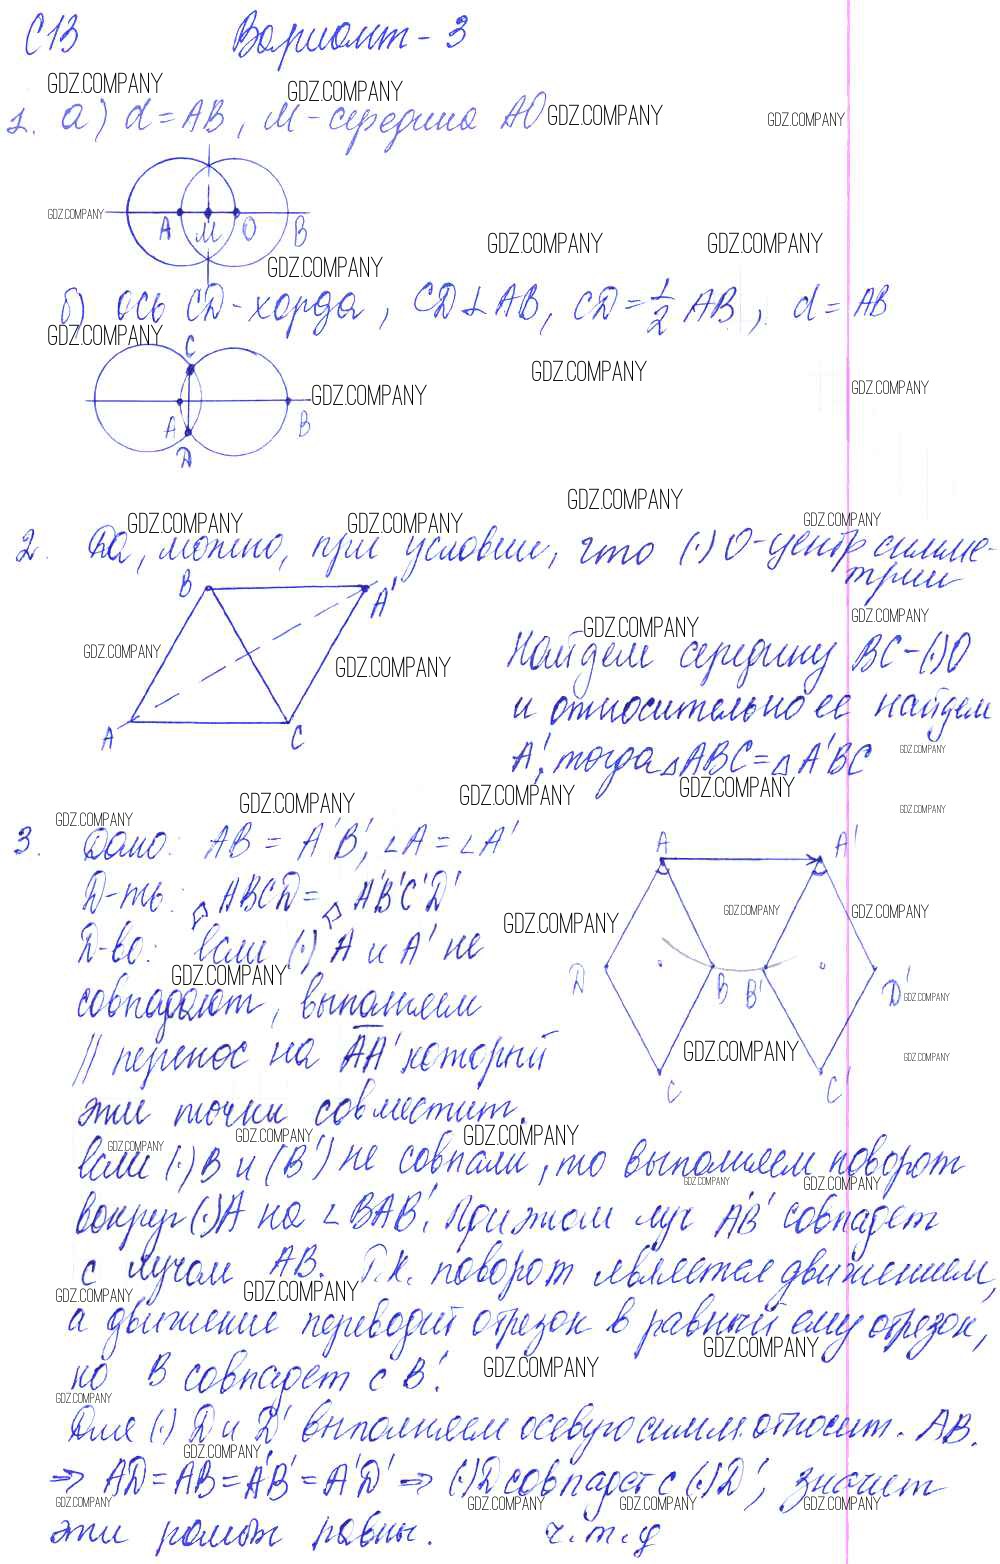 С13 Вариант - 3
GDZ.COMPANY GDZ.COMPANY
1. а) d = AB, M - середина AO GDZ.COMPANY GDZ.COMPANY
GDZ.COMPANY A M O B GDZ.COMPANY GDZ.COMPANY
GDZ.COMPANY
б) ось CD - хорда, CD ⊥ AB, CD = 1/2 AB, d = AB
GDZ.COMPANY
C GDZ.COMPANY
GDZ.COMPANY GDZ.COMPANY
A B
D
GDZ.COMPANY
GDZ.COMPANY GDZ.COMPANY GDZ.COMPANY
2. Да, можно, при условии, что (·) O - центр симме-
трии
B A'
GDZ.COMPANY GDZ.COMPANY
Найдем середину BC - (·) O
GDZ.COMPANY GDZ.COMPANY
и относительно ее найдем
A C
A', тогда △ABC = △A'BC GDZ.COMPANY
GDZ.COMPANY GDZ.COMPANY GDZ.COMPANY GDZ.COMPANY
GDZ.COMPANY
3. Дано: AB = A'B', ∠A = ∠A' A A'
Д-ть: ▱ABCD = ▱A'B'C'D'
GDZ.COMPANY GDZ.COMPANY GDZ.COMPANY
Д-во: если (·) A и A' не
GDZ.COMPANY
D B B' D' GDZ.COMPANY
совпадают, выполняем
|| перенос на AA' который
GDZ.COMPANY GDZ.COMPANY
C C'
эти точки совместит.
GDZ.COMPANY GDZ.COMPANY GDZ.COMPANY
если (·) B и (B') не совпали, то выполняем поворот
GDZ.COMPANY GDZ.COMPANY
вокруг (·) A на ∠BAB'. При этом луч A'B' совпадет
с лучом AB. Т.к. поворот является движением,
GDZ.COMPANY GDZ.COMPANY
а движение переводит отрезок в равный ему отрезок,
GDZ.COMPANY
но B совпадет с B'. GDZ.COMPANY
GDZ.COMPANY
Для (·) D и D' выполняем осевую симм. относит. AB.
GDZ.COMPANY
⇒ AD = AB = A'B' = A'D' ⇒ (·) D совпадет с (·) D', значит
GDZ.COMPANY GDZ.COMPANY GDZ.COMPANY GDZ.COMPANY
эти ромбы равны. ч.т.д